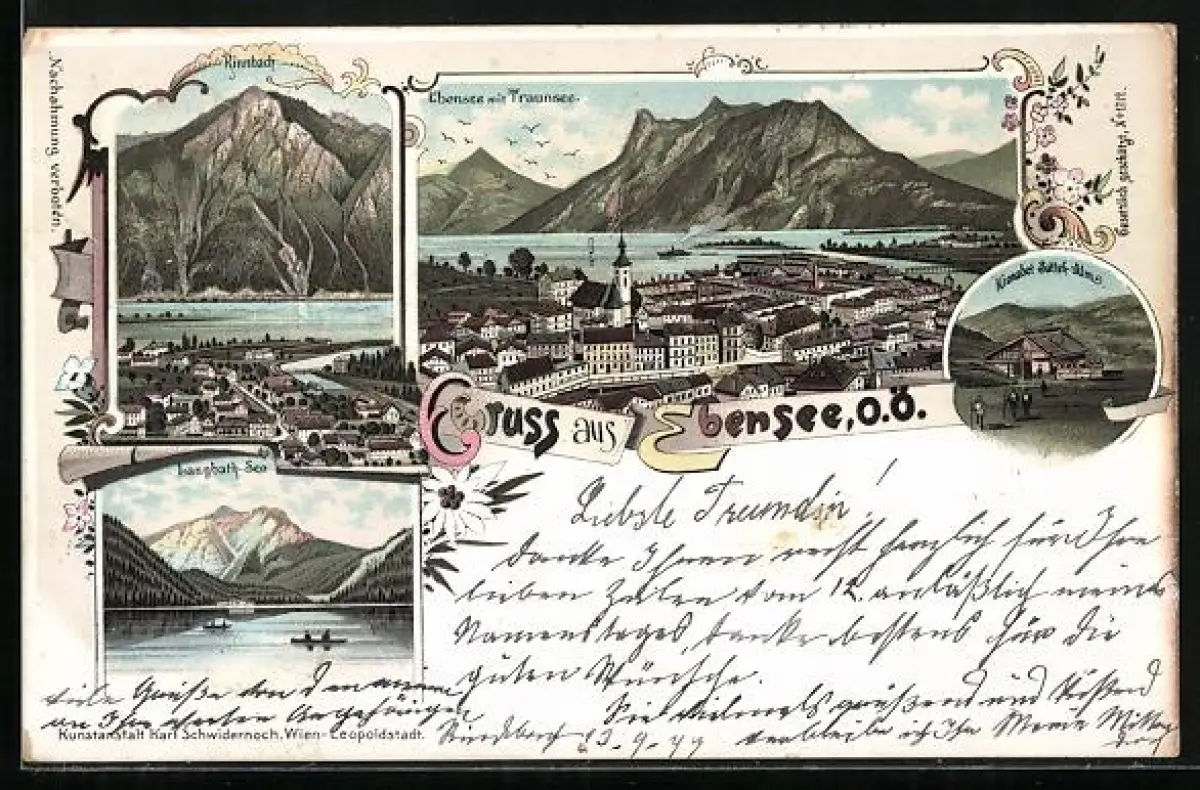 Nachahmung verboten.
Rinnbach
Ebensee mit Traunsee.
Gesetzlich geschützt,
Kranabet Sattel-Alm
Gruss aus Ebensee, O.Ö.
Langbath-See
Liebste Freundin!
Danke Ihnen recht herzlich für Ihre
lieben Zeilen vom 12. anläßlich meines
Namenstages, danke bestens für die
guten Wünsche.
Sie vielmals grüßend und küssend
verbleibe ich Ihre
13-9-99
viele Grüße von
an Ihre werten Angehörigen
Kunstanstalt Karl Schwidernoch, Wien-Leopoldstadt.